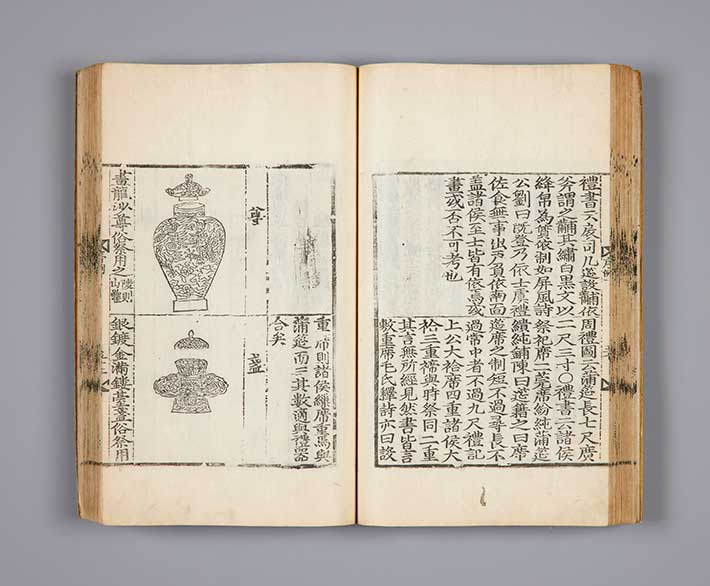 禮書云扆司几筵設黼依
斧謂之黼其繡白黑文以
絳帛爲質依制如屛風詩
公劉曰旣登乃依士虞禮
佐食無事出戶負依南面
盖諸侯至士皆有依焉或
畫或否不可考也
周禮圖云蒲筵長七尺廣
二尺三寸○禮書云諸侯
祭祀席二莞席紛純蒲筵
繢純鋪陳曰筵藉之曰席
筵席之制短不過尋長不
過常中者不過九尺禮記
上公大祫席四重諸侯大
祫三重禘與時祭同二重
其言無所經見然書皆言
敷重席毛氏釋詩亦曰設
重席則諸侯繅席重焉與
蒲筵而三其數適與禮器
合矣
尊
畫龍沙尊俗祭用之
陵則
山罍
盞
銀鍍金滿鏤臺盞俗祭用